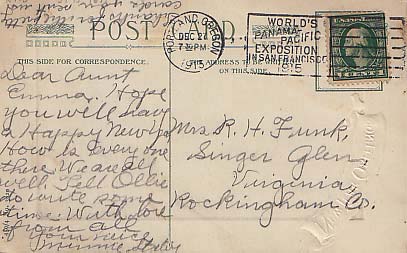 POST CARD
PORTLAND, OREGON
DEC 27
7 30 PM
1915
WORLD'S
PANAMA-
PACIFIC
EXPOSITION
IN SAN FRANCISCO
1915
THIS SIDE FOR CORRESPONDENCE.
THE ADDRESS
ON THIS SIDE.
Dear Aunt
Emma. Hope
you will have
a Happy New Year
How is everyone
there We are all
well. Tell Ollie
to write some
time. With love
from all
Your niece
Minnie
Mrs. R. H. Funk,
Singer Glen
Virginia,
Rockingham Co.